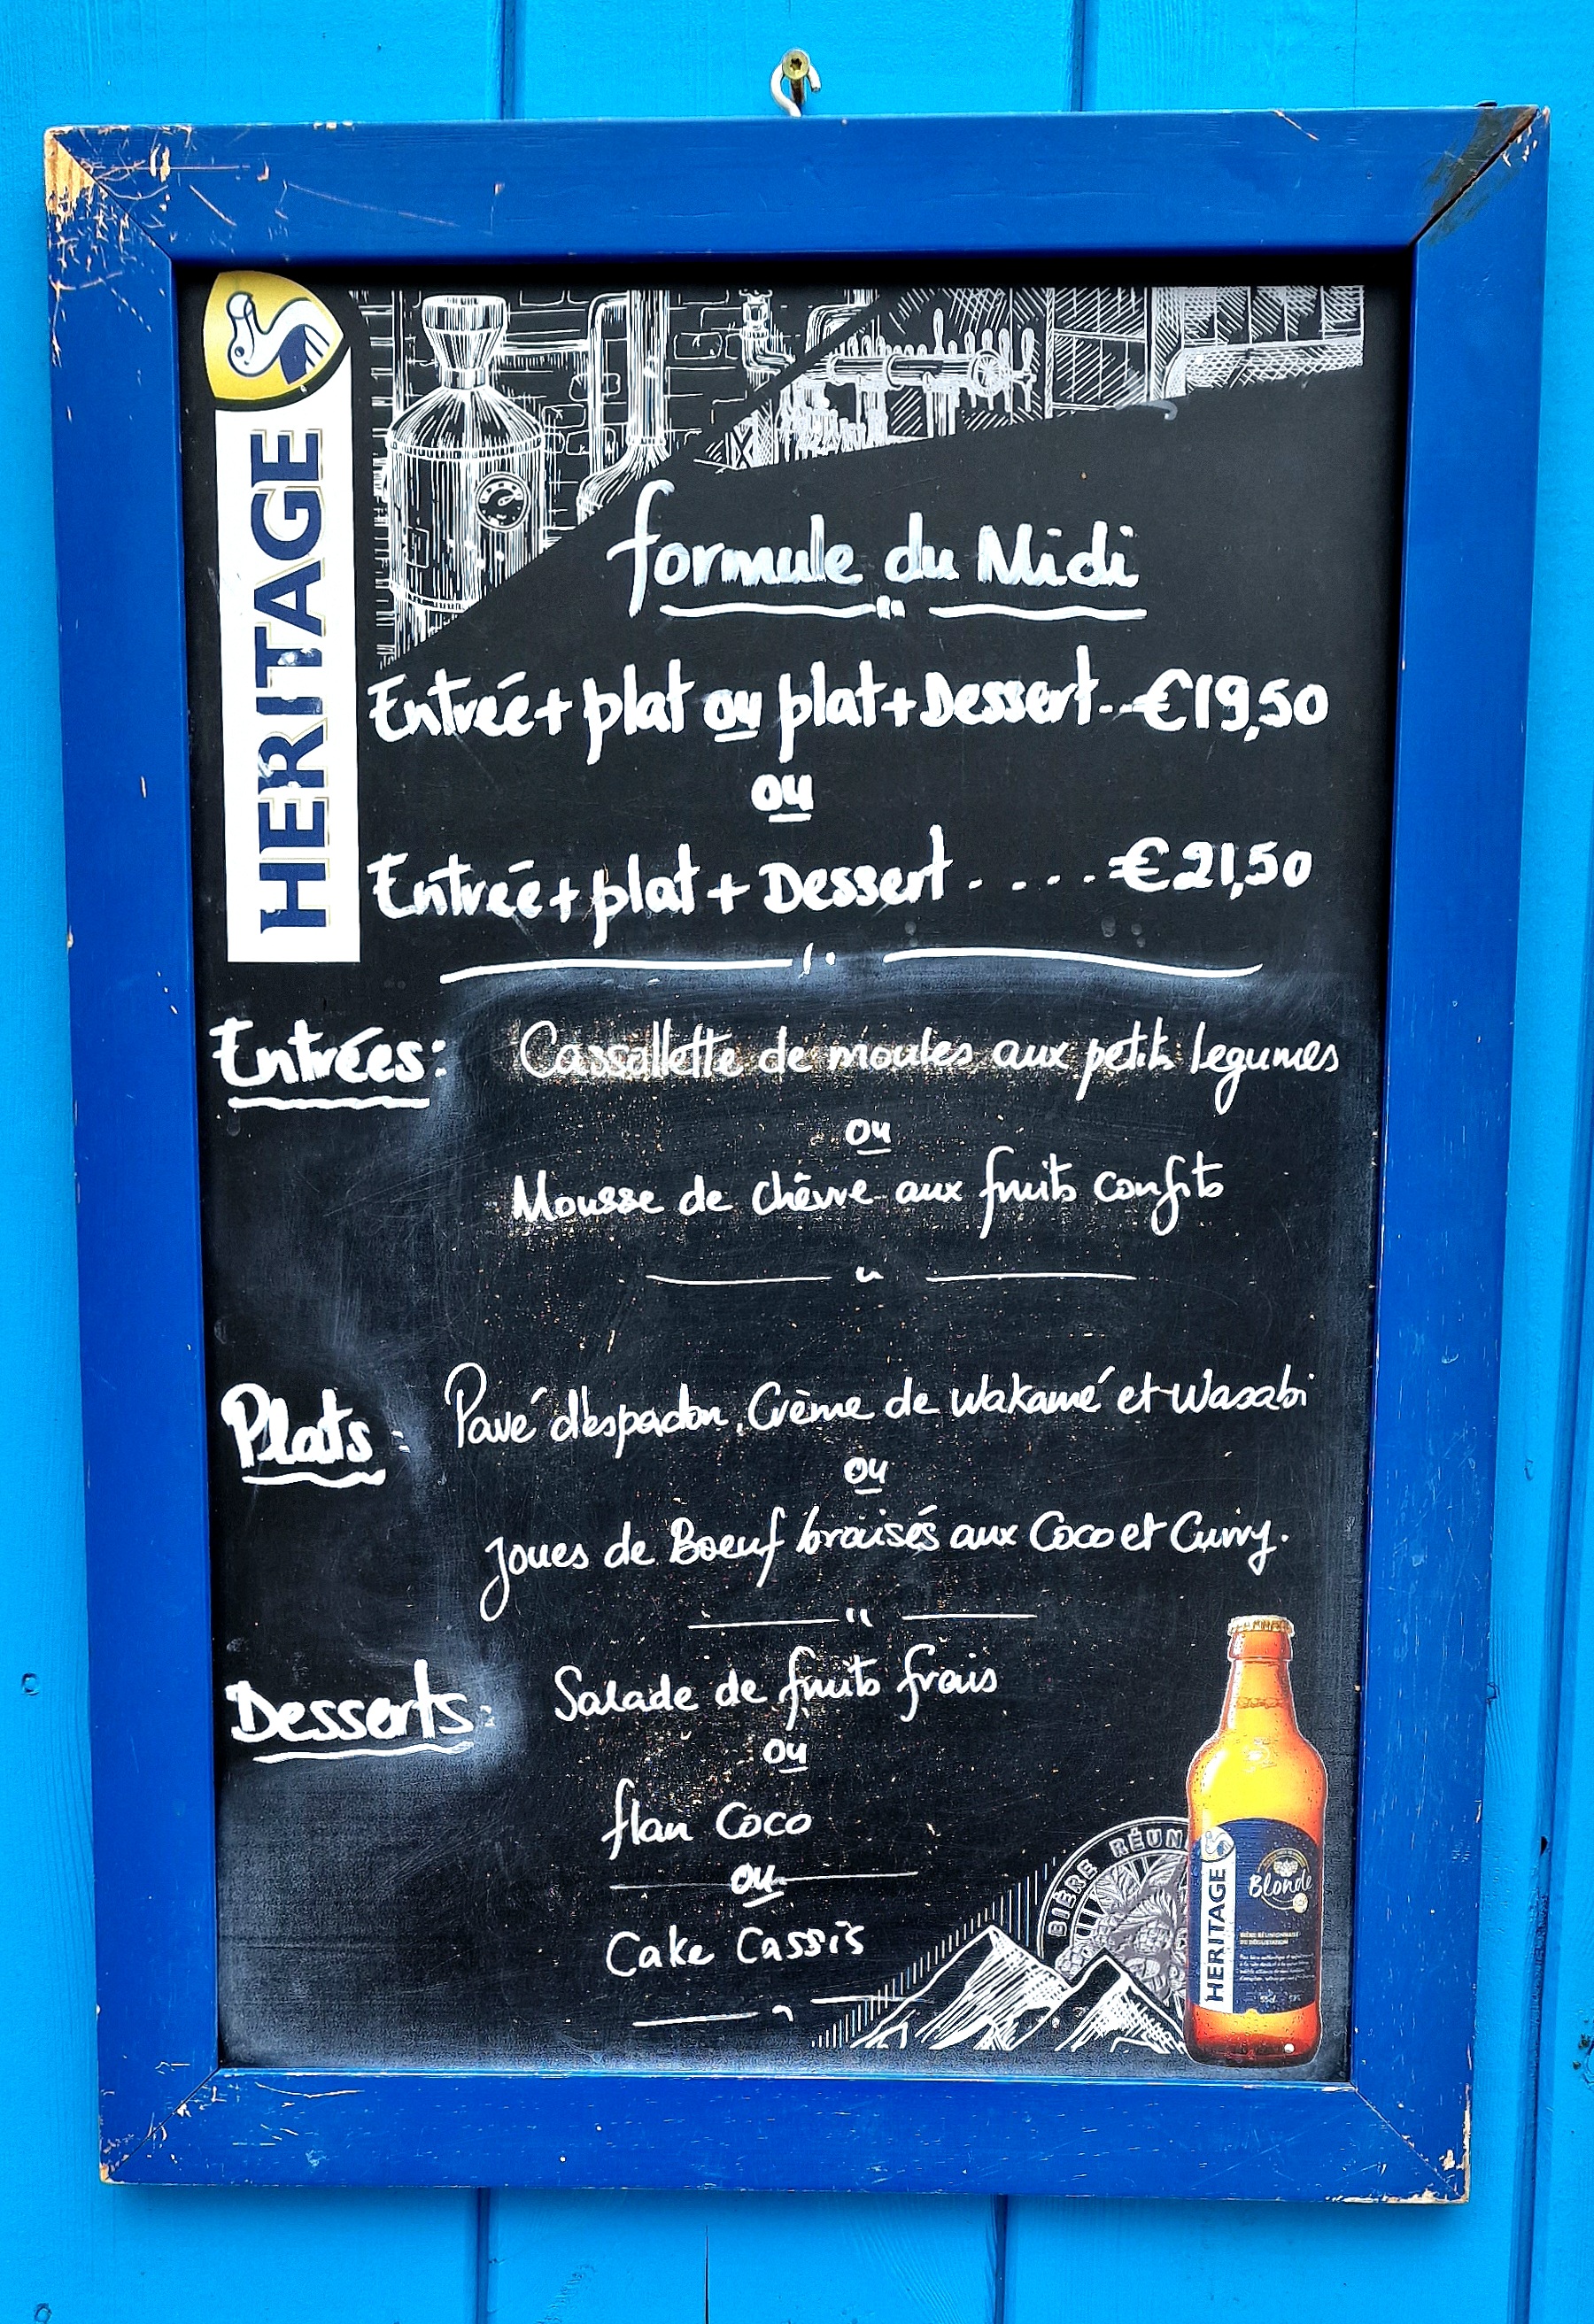 HERITAGE
formule du Midi
Entrée + plat ou plat + Dessert..€19,50
ou
Entrée + plat + Dessert....€21,50
Entrées: Cassollette de moules aux petits legumes
ou
Mousse de chèvre aux fruits confits
Plats: Pavé d'espadon, Crème de wakamé et Wasabi
ou
Joues de Boeuf braisés aux Coco et Curry.
Desserts: Salade de fruits frais
ou
flan Coco
ou
Cake Cassis
BIÈRE RÉUN
HERITAGE
Blonde
BIÈRE RÉUNIONNAISE
DE DÉGUSTATION